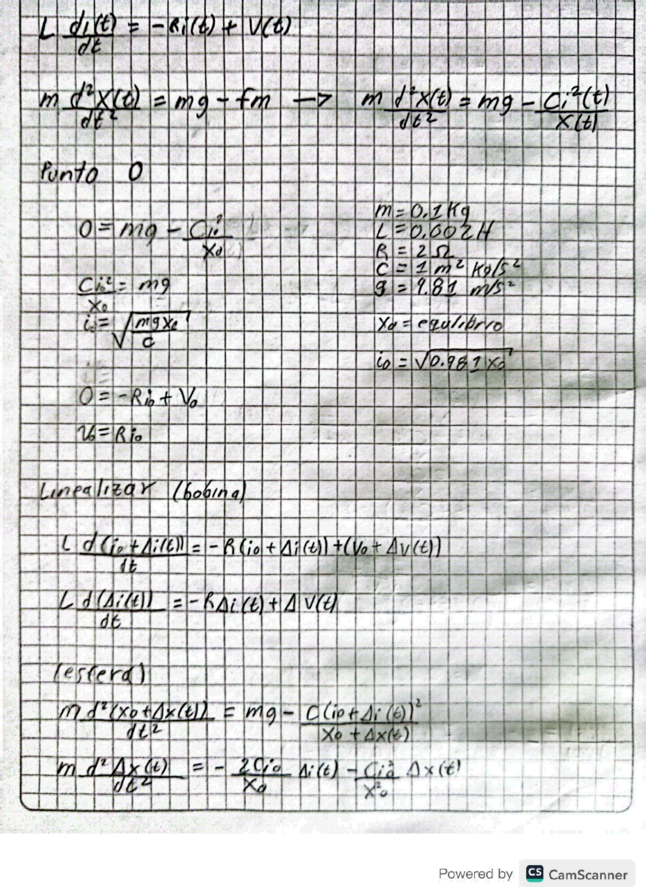 L di(t)/dt = -Ri(t) + V(t)
m d²x(t)/dt² = mg - fm → m d²x(t)/dt² = mg - Ci²(t)/x(t)
Punto 0
0 = mg - Ci₀²/x₀
Ci₀²/x₀ = mg
i₀ = √(mgx₀/C)
0 = -Ri₀ + V₀
V₀ = Ri₀
m = 0.1 Kg
L = 0.002 H
R = 2 Ω
C = 1 m² Kg/s²
g = 9.81 m/s²
x₀ = equlibrio
i₀ = √(0.981 x₀)
Linealizar (bobina)
L d(i₀+Δi(t))/dt = -R(i₀+Δi(t)) + (V₀+ΔV(t))
L d(Δi(t))/dt = -RΔi(t) + ΔV(t)
(esfera)
m d²(x₀+Δx(t))/dt² = mg - C(i₀+Δi(t))²/x₀+Δx(t)
m d²Δx(t)/dt² = - 2Ci₀/x₀ Δi(t) - Ci₀²/x₀² Δx(t)
Powered by CS CamScanner